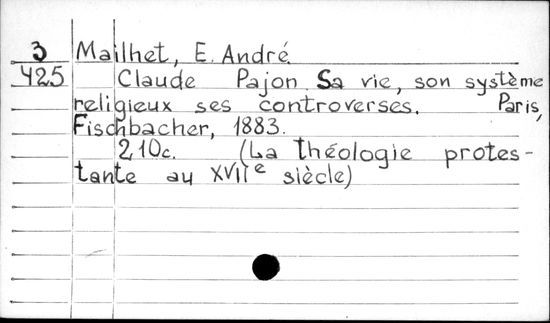 3 Mailhet, E. André.
425 Claude Pajon. Sa vie, son système
religieux ses controverses. Paris,
Fischbacher, 1883.
210c. (La théologie protes-
tante au XVIIe siècle)